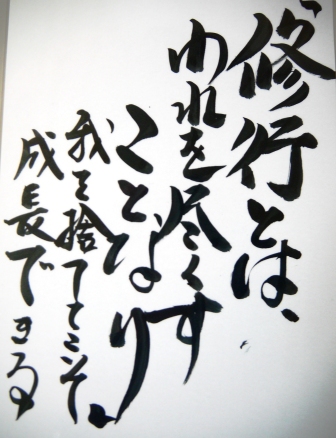 修行とは、
われを尽くす
ことなり
我を捨ててこそ
成長できる